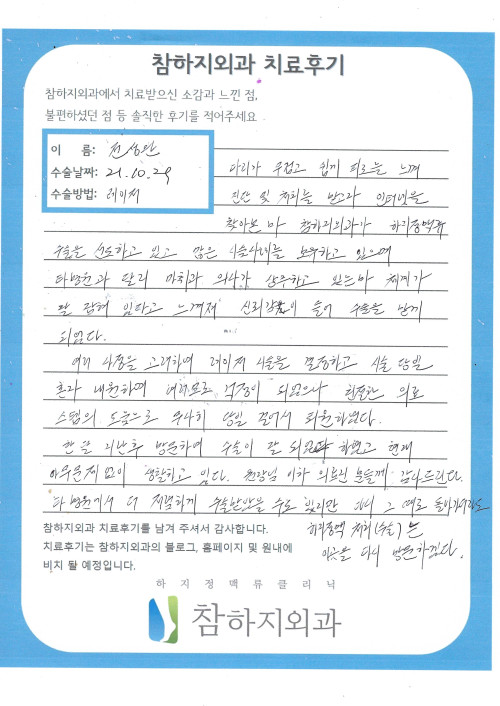 참하지외과 치료후기
참하지외과에서 치료받으신 소감과 느낀 점,
불편하셨던 점 등 솔직한 후기를 적어주세요
이 름: 전상완
수술날짜: 21.10.29
수술방법: 레이저
다리가 무겁고 쉽게 피로를 느껴
진단 및 치료를 받고자 인터넷을
찾아본 바 참하지외과가 하지정맥류
수술을 선도하고 있고 많은 시술사례를 보유하고 있으며
타병원과 달리 마취과 의사가 상주하고 있는바 체계가
잘 잡혀 있다고 느껴져 신뢰감이 들어 수술을 받게
되었다.
여러 사정을 고려하여 레이저 시술을 결정하고 시술 당일
혼자 내원하여 여러모로 걱정이 되었으나 친절한 의료
스텝의 도움으로 무사히 당일 걸어서 퇴원하였다.
한 달 지난후 방문하여 수술이 잘 되었다 하였고 현재
아무문제 없이 생활하고 있다. 원장님 이하 의료진 분들께 감사드린다.
타 병원에서 더 저렴하게 수술받았을 수도 있지만 다시 그 때로 돌아가더라도
하지정맥 치료(수술)는
이곳을 다시 방문하겠다.
참하지외과 치료후기를 남겨 주셔서 감사합니다.
치료후기는 참하지외과의 블로그, 홈페이지 및 원내에
비치 될 예정입니다.
하지정맥류클리닉
참하지외과